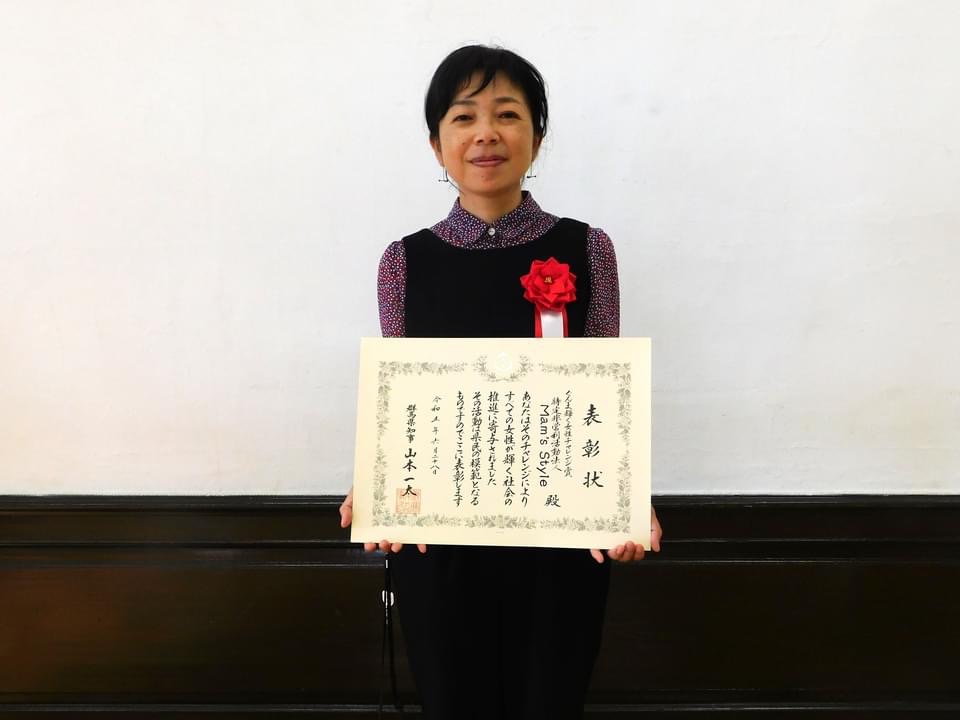 表彰状
ぐんま輝く女性チャレンジ賞
特定非営利活動法人
Mam's Style 殿
あなたはそのチャレンジにより
すべての女性が輝く社会の
推進に寄与されました
その活動は県民の模範となる
ものですのでここに表彰します
令和五年六月二十八日
群馬県知事 山本一太